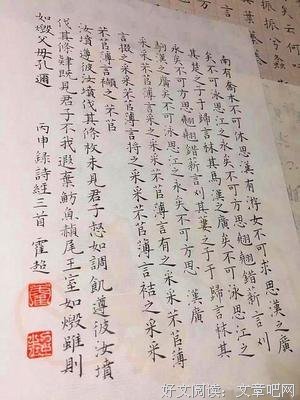 南有喬木不可休思漢有游女不可求思漢之廣
矣不可泳思江之永矣不可方思翹翹錯薪言刈
其楚之子于歸言秣其馬漢之廣矣不可泳思江之
永矣不可方思翹翹錯薪言刈其蔞之子于歸言秣其
駒漢之廣矣不可泳思江之永矣不可方思 漢廣
采采芣苢薄言采之采采芣苢薄言有之采采芣苢薄
言掇之采采芣苢薄言捋之采采芣苢薄言袺之采采
芣苢薄言襭之 芣苢
汝墳遵彼汝墳伐其條枚未見君子惄如調飢遵彼汝墳
伐其條肄既見君子不我遐棄魴魚赬尾王室如燬雖則
如燬父母孔邇 丙申錄詩經三首 霍超
好文阅读：文章吧网